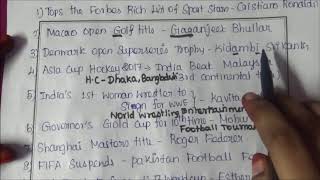 1) Tops the Forbes Rich List of Sport Stars - Cristiano Ronaldo
2) Macao open Golf title - Gaganjeet Bhullar
3) Denmark open Superseries Trophy - Kidambi Srikanth
4) Asia Cup Hockey 2017 → India Beat Malaysia
H·C - Dhaka, Bangladesh 3rd continental
5) India's 1st Woman wrestler to
Sign for WWE - Kavita
World Wrestling Entertainment
6) Governor's Gold Cup for 10th time - Mohu
Football Tournam
7) Shanghai Masters title - Roger Federer
8) FIFA Suspends - pakistan Football Fe